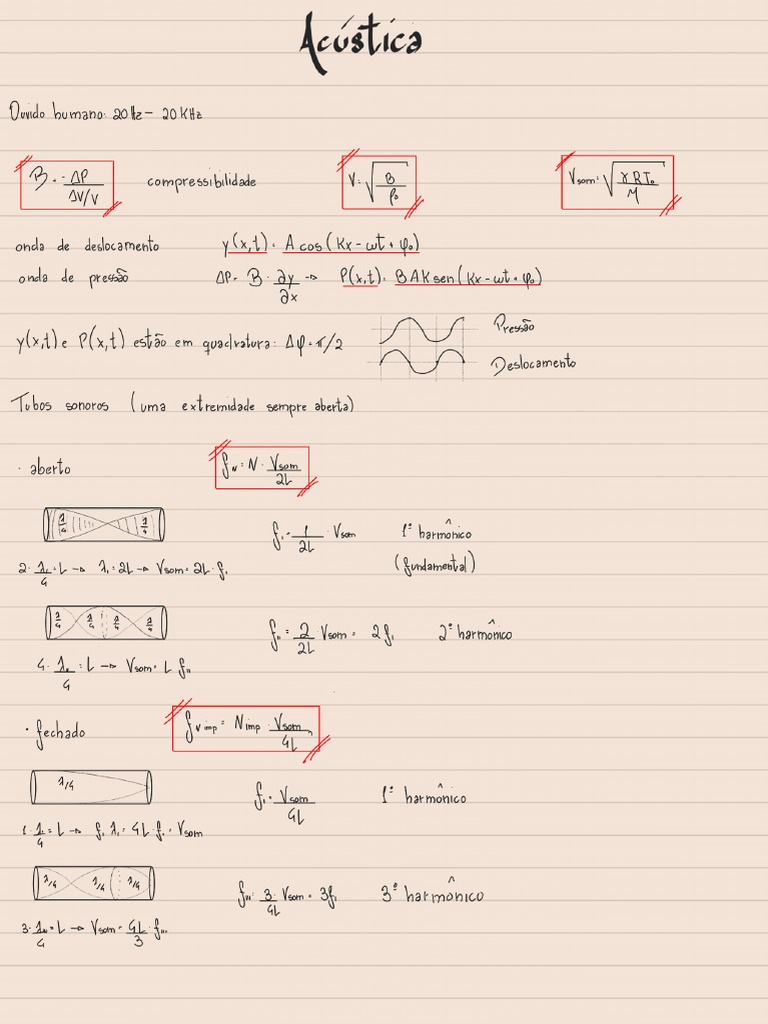 Acústica
Ouvido humano: 20Hz – 20KHz
B = - ΔP / ΔV/V compressibilidade V = √(B / ρ₀) Vsom = √(γRT₀ / M)
onda de deslocamento y(x,t) = A cos(Kx - ωt + φ₀)
onda de pressão ΔP = B · ∂y / ∂x → P(x,t) = BAK sen(Kx - ωt + φ₀)
y(x,t) e P(x,t) estão em quadratura: Δφ = π/2
Pressão
Deslocamento
Tubos sonoros (uma extremidade sempre aberta)
· aberto f_N = N · Vsom / 2L
λ/4 λ/4
f₁ = 1 / 2L · Vsom 1º harmônico
(fundamental)
2 · λ₁ / 4 = L → λ₁ = 2L → Vsom = 2L · f₁
λ/4 λ/4 λ/4 λ/4
f_II = 2 / 2L · Vsom = 2f₁ 2º harmônico
4 · λ_II / 4 = L → Vsom = L f_II
· fechado f_N imp = N imp · Vsom / 4L
λ/4
f₁ = Vsom / 4L 1º harmônico
1 · λ₁ / 4 = L → f₁ λ₁ = 4L · f₁ = Vsom
λ/4 λ/4 λ/4
f_III = 3 / 4L · Vsom = 3f₁ 3º harmônico
3 · λ_III / 4 = L → Vsom = 4L / 3 · f_III